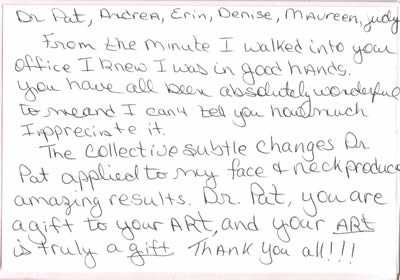 Dr Pat, Andrea, Erin, Denise, Maureen, Judy
From the minute I walked into your
office I knew I was in good hands.
You have all been absolutely wonderful
to me and I can't tell you how much
I appreciate it.
The collective subtle changes Dr
Pat applied to my face & neck produce
amazing results. Dr. Pat, you are
a gift to your ART, and your ART
is truly a gift Thank you all!!!